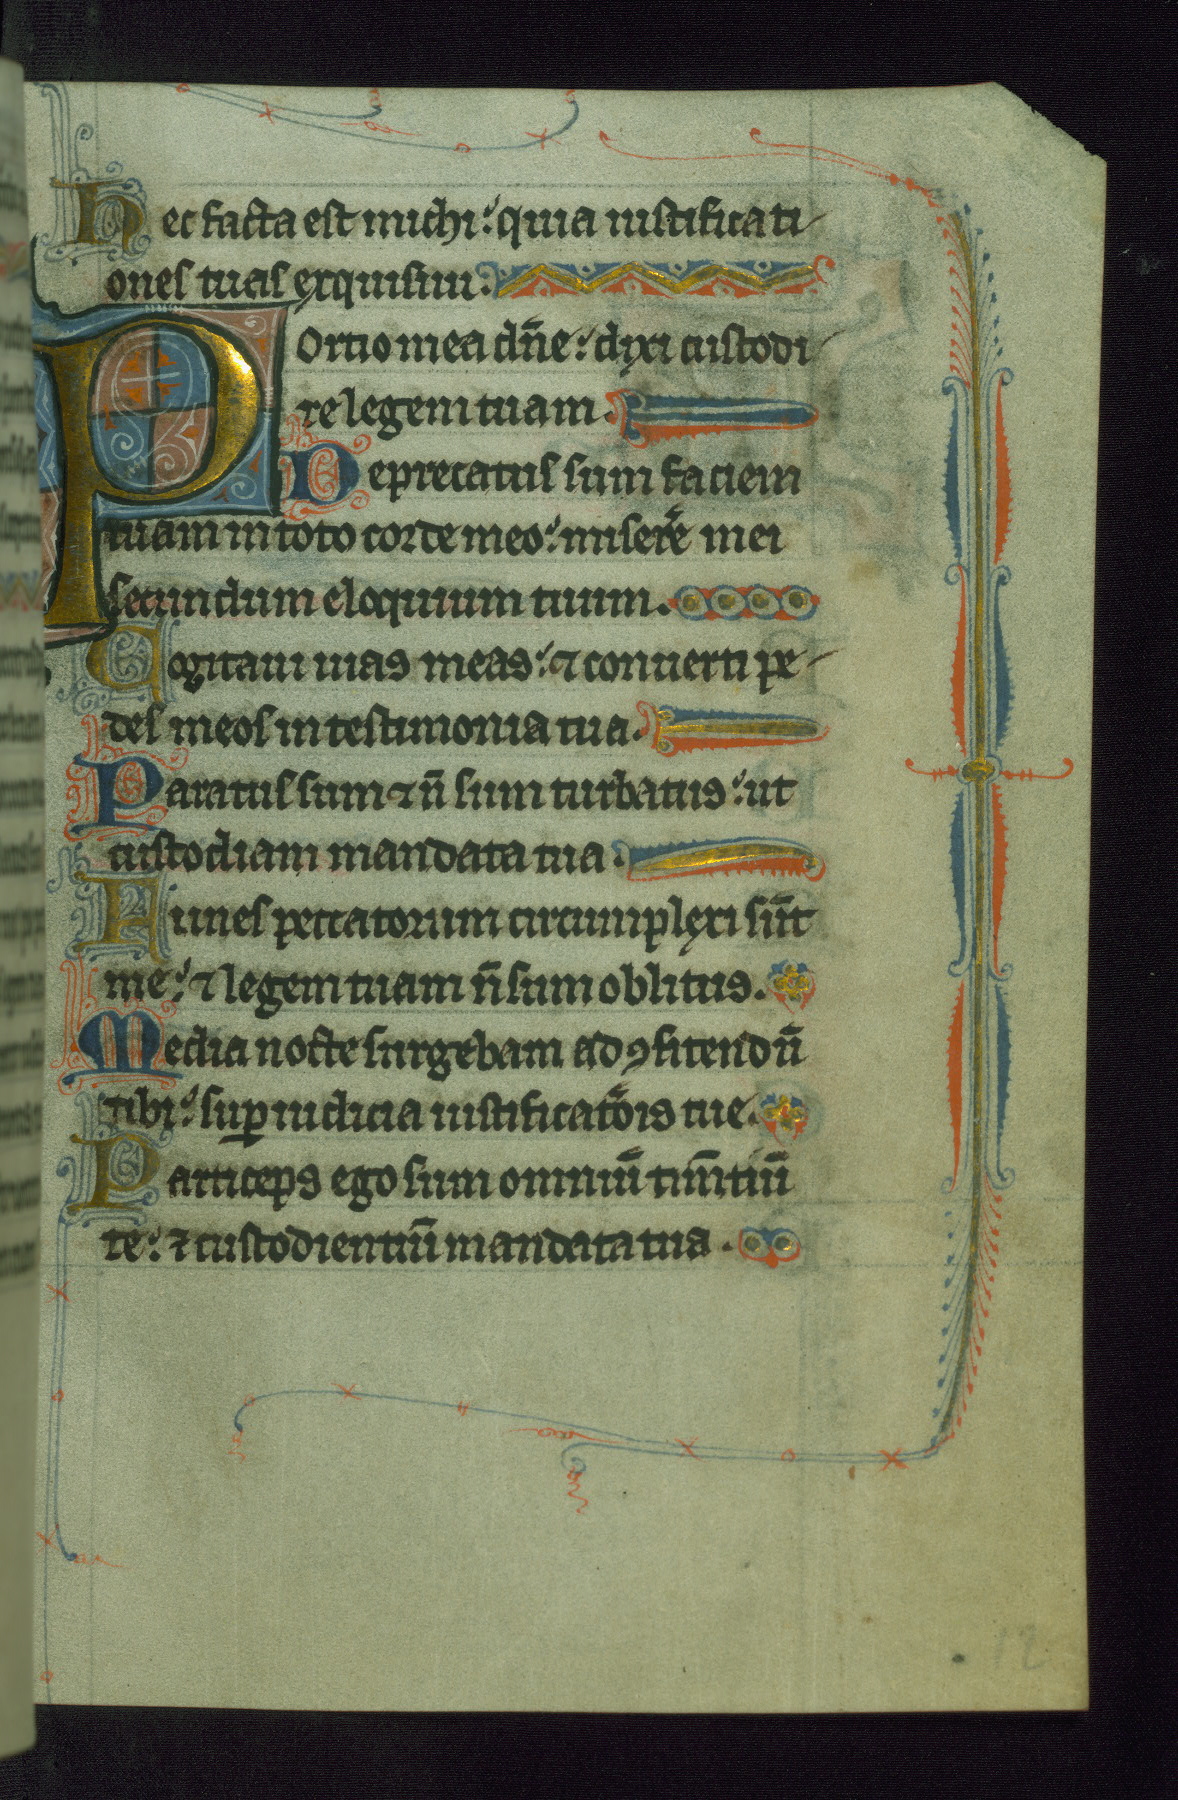 Hec facta est michi: quia iustificati
ones tuas exquisiui.
Portio mea dñe: dixi custodi
re legem tuam.
Deprecatus sum faciem
tuam in toto corde meo: misere̅ mei
secundum eloquium tuum.
Cogitaui uias meas: ⁊ conuerti pe
des meos in testimonia tua.
Paratus sum ⁊ n̅ sum turbatus: ut
custodiam mandata tua.
Funes peccatorum circumplexi su̅t
me: ⁊ legem tuam n̅ sum oblitus.
Media nocte surgebam ad ꝯfitendu̅
tibi: suꝑ iudicia iustificato̅is tue.
Particeps ego sum omniu̅ tim̅tiu̅
te: ⁊ custodientiu̅ mandata tua.
12